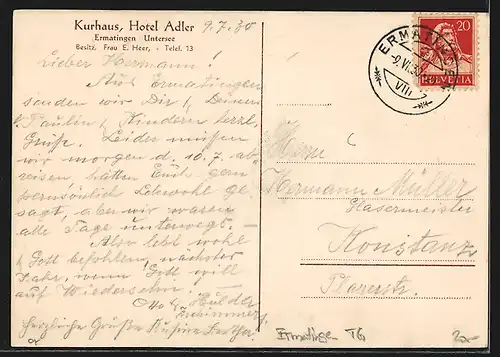 Kurhaus, Hotel Adler
Ermatingen Untersee
Besitz. Frau E. Heer, - Telef. 13
9.7.30
Lieber Hermann!
Aus Ermatingen
senden wir Dir & Deiner
Paulin & Kindern herzl.
Grüße. Leider müssen
wir morgen d. 10.7. ab
reisen hätten Euch gern
persöhnlich Lebewohl ge
sagt, aber wir waren
alle Tage unterwegs. -
Also lebt wohl
& Gott befohlen, nächstes
Jahr, wenn Gott will
auf Wiedersehn!
Otto & Hulda
herzliche Grüße
ERMATINGEN
VII
20
HELVETIA
Herrn
Hermann Müller
Glasermeister
Konstanz
Ermatingen TG